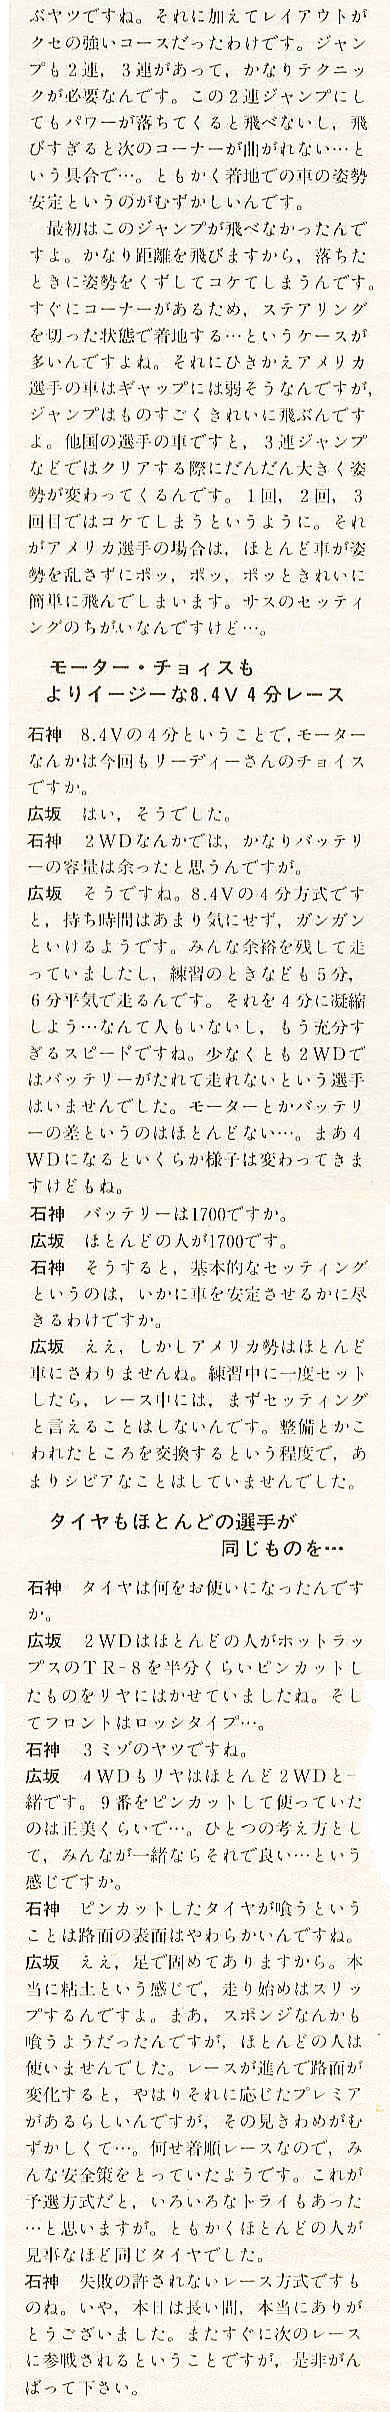 ぶヤツですね。それに加えてレイアウトが
クセの強いコースだったわけです。ジャン
プも2連，3連があって，かなりテクニッ
クが必要なんです。この2連ジャンプにし
てもパワーが落ちてくると飛べないし，飛
びすぎると次のコーナーが曲がれない…と
いう具合で…。ともかく着地での車の姿勢
安定というのがむずかしいんです。
　最初はこのジャンプが飛べなかったんで
すよ。かなり距離を飛びますから，落ちた
ときに姿勢をくずしてコケてしまうんです。
すぐにコーナーがあるため，ステアリング
を切った状態で着地する…というケースが
多いんですよね。それにひきかえアメリカ
選手の車はギャップには弱そうなんですが，
ジャンプはものすごくきれいに飛ぶんです
よ。他国の選手の車ですと，3連ジャンプ
などではクリアする際にだんだん大きく姿
勢が変わってくるんです。1回，2回，3
回目ではコケてしまうというように。それ
がアメリカ選手の場合は，ほとんど車が姿
勢を乱さずにポッ，ポッ，ポッときれいに
簡単に飛んでしまいます。サスのセッティ
ングのちがいなんですけど…。
モーター・チョィスも
よりイージーな8.4V 4分レース
石神　8.4Vの4分ということで，モーター
なんかは今回もリーディーさんのチョイス
ですか。
広坂　はい，そうでした。
石神　2WDなんかでは，かなりバッテリ
ーの容量は余ったと思うんですが。
広坂　そうですね。8.4Vの4分方式です
と，持ち時間はあまり気にせず，ガンガン
といけるようです。みんな余裕を残して走
っていましたし，練習のときなども5分，
6分平気で走るんです。それを4分に凝縮
しよう…なんて人もいないし，もう充分す
ぎるスピードですね。少なくとも2WDで
はバッテリーがたれて走れないという選手
はいませんでした。モーターとかバッテリ
ーの差というのはほとんどない…。まあ4
WDになるといくらか様子は変わってきま
すけどもね。
石神　バッテリーは1700ですか。
広坂　ほとんどの人が1700です。
石神　そうすると，基本的なセッティング
というのは，いかに車を安定させるかに尽
きるわけですか。
広坂　ええ，しかしアメリカ勢はほとんど
車にさわりませんね。練習中に一度セット
したら，レース中には，まずセッティング
と言えることはしないんです。整備とかこ
われたところを交換するという程度で，あ
まりシビアなことはしていませんでした。
タイヤもほとんどの選手が
同じものを…
石神　タイヤは何をお使いになったんです
か。
広坂　2WDはほとんどの人がホットラッ
プスのTR-8を半分くらいピンカットし
たものをリヤにはかせていましたね。そし
てフロントはロッシタイプ…。
石神　3ミゾのヤツですね。
広坂　4WDもリヤはほとんど2WDと一
緒です。9番をピンカットして使っていた
のは正美くらいで…。ひとつの考え方とし
て，みんなが一緒ならそれで良い…という
感じですか。
石神　ピンカットしたタイヤが喰うという
ことは路面の表面はやわらかいんですね。
広坂　ええ，足で固めてありますから。本
当に粘土という感じで，走り始めはスリッ
プするんですよ。まあ，スポンジなんかも
喰うようだったんですが，ほとんどの人は
使いませんでした。レースが進んで路面が
変化すると，やはりそれに応じたプレミア
があるらしいんですが，その見きわめがむ
ずかしくて…。何せ着順レースなので，み
んな安全策をとっていたようです。これが
予選方式だと，いろいろなトライもあった
…と思いますが。ともかくほとんどの人が
見事なほど同じタイヤでした。
石神　失敗の許されないレース方式ですも
のね。いや，本日は長い間，本当にありが
とうございました。またすぐに次のレース
に参戦されるということですが，是非がん
ばって下さい。